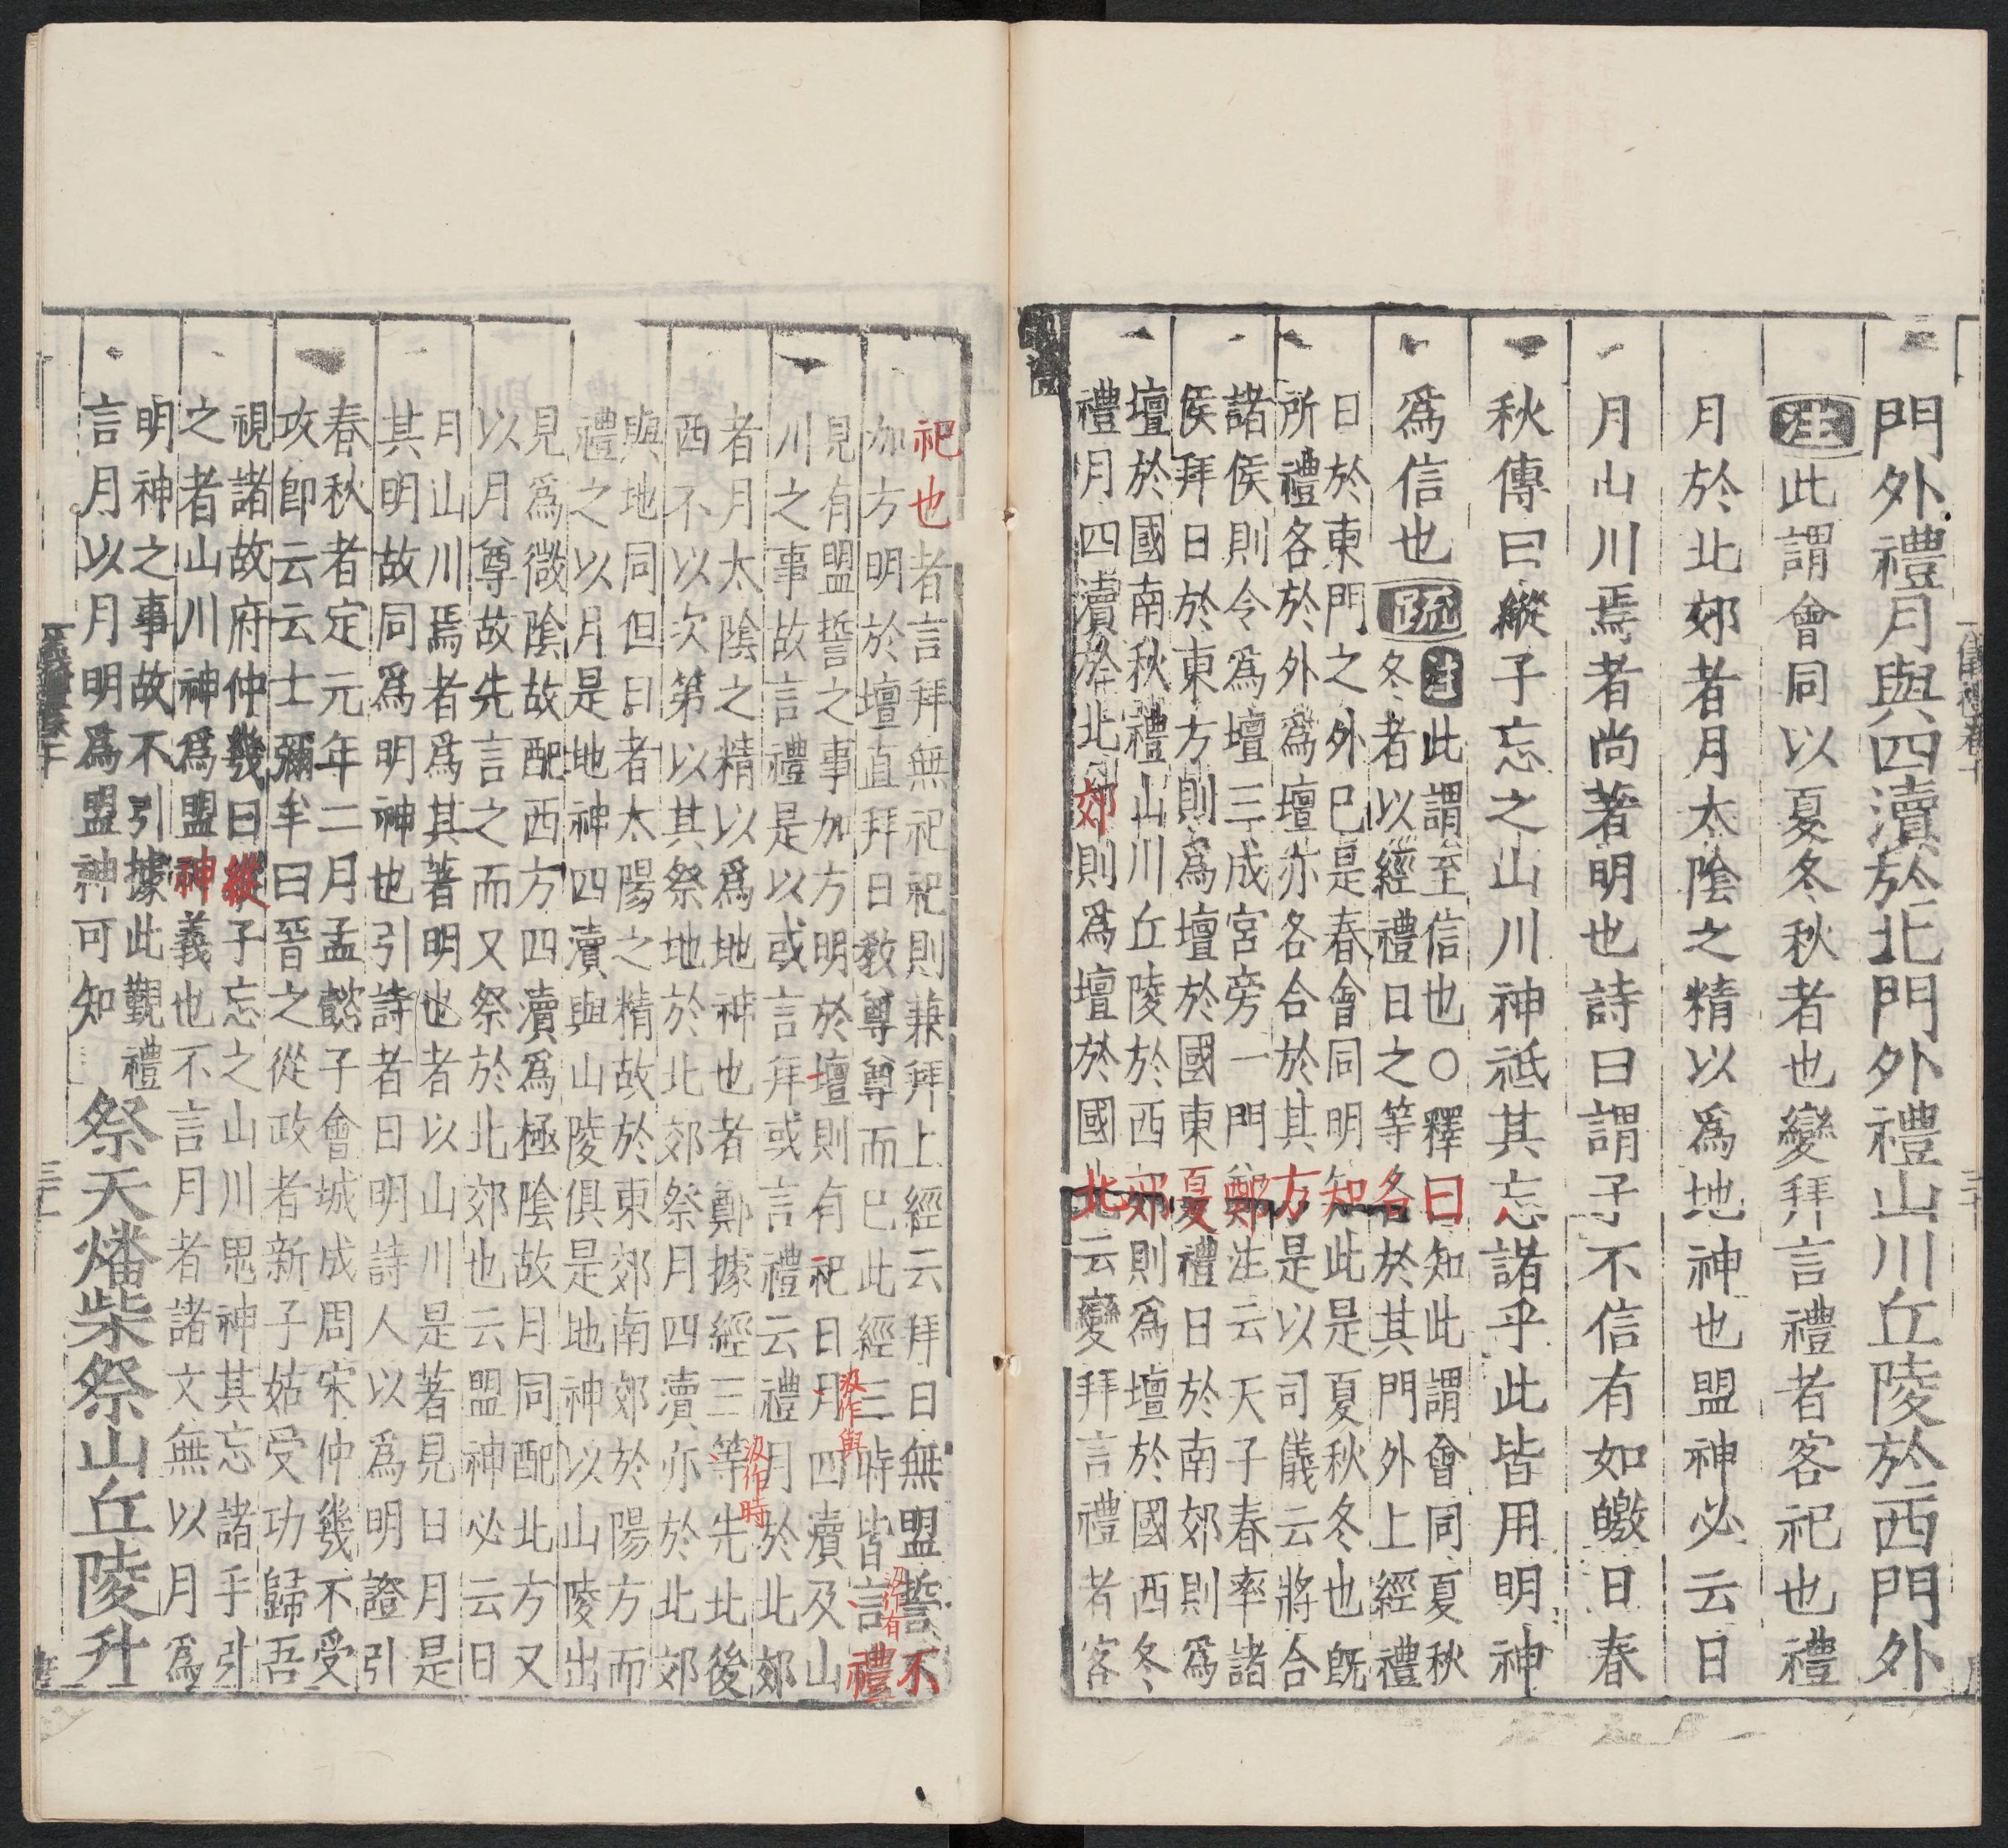 門外禮月與四瀆於北門外禮山川丘陵於西門外
注此謂會同以夏冬秋者也變拜言禮者客祀也禮
月於北郊者月太陰之精以爲地神也盟神必云日
月山川焉者尚著明也詩曰謂予不信有如皦日春
秋傳曰縱子忘之山川神祇其忘諸乎此皆用明神
爲信也疏
注此謂至信也○釋曰知此謂會同夏秋
冬者以經禮日之等各於其門外上經禮
日於東門之外巳是春會同明知此是夏秋冬也旣
所禮各於外爲壇亦各合於其方是以司儀云將合
諸侯則令爲壇三成宮旁一門鄭注云天子春率諸
侯拜日於東方則爲壇於國東夏禮日於南郊則爲
壇於國南秋禮山川丘陵於西郊則爲壇於國西冬
禮月四瀆於北郊則爲壇於國北云變拜言禮者客
祀也者言拜無祀祀則兼拜上經云拜日無盟誓不
加方明於壇直拜日敎尊尊而巳此經三時皆言禮
見有盟誓之事加方明於壇則有祀日月四瀆及山
川之事故言禮是以或言拜或言禮云禮月於北郊
者月太陰之精以爲地神也者鄭據經三等先北後
西不以次第以其祭地於北郊祭月四瀆亦於北郊
與地同但日者太陽之精故於東郊南郊於陽方而
禮之以月是地神四瀆與山陵俱是地神以山陵出
見爲微陰故配西方四瀆爲極陰故月同配北方又
以月尊故先言之而又祭於北郊也云盟神必云日
月山川焉者爲其著明也者以山川是著見日月是
其明故同爲明神也引詩者曰明詩人以爲明證引
春秋者定元年二月孟懿子會城成周宋仲幾不受
攻卽云云士彌牟曰晉之從政者新子姑受功歸吾
視諸故府仲幾曰縱子忘之山川鬼神其忘諸乎引
之者山川神爲盟神義也不言月者諸文無以月爲
明神之事故不引據此覲禮
言月以月明爲盟神可知
祭天燔柴祭山丘陵升
汲作與
汲作時
汲作有